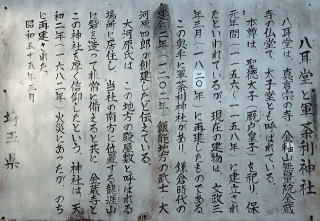 八耳堂と軍荼利神社
八耳堂は、真言宗の寺 金軸山誓願院金蔵
寺の仏堂で、太子堂とも呼ばれている。
本尊は、聖徳太子(厩戸皇子)を祀り、保
元年間(一一五六〜一一五八)に建立され
たといわれているが、現在の建物は、文政三
年三月(一八二〇)に再建したものである。
この奥手に軍荼利神社があり、鎌倉時代の
建仁二年(一二〇二)飯能地方の武士 大
河原四郎が創建したと伝えている。
大河原氏は、この地方の殿屋敷と呼ばれる
場所に居住し、当社の南方に位置する龍涯山
に砦を造って非常に備えると共に、金蔵寺と
この神社を厚く信仰したという。神社は、天
和二年(一六八二)火災にあったが、のち
に再建された。
昭和五十五年三月
埼玉県